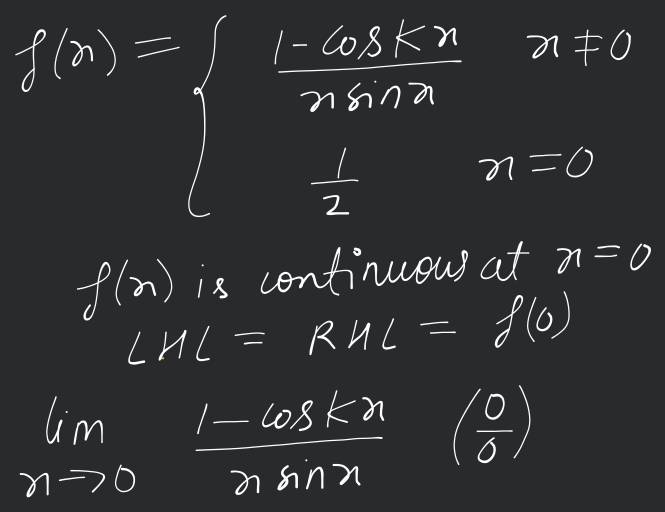 f(x) = { (1 - cos kx) / (x sin x)   x ≠ 0
1/2   x = 0
f(x) is continuous at x = 0
LHL = RHL = f(0)
lim x→0 (1 - cos kx) / (x sin x)   (0/0)